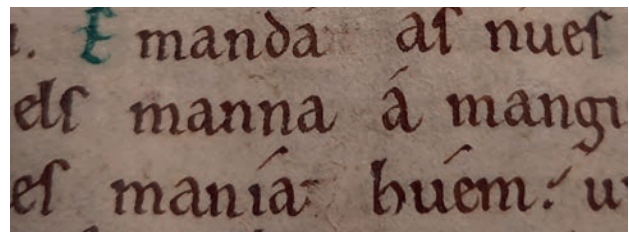 . E mandá aſ nueſ
elſ manna á mangi
eſ manía buém. u